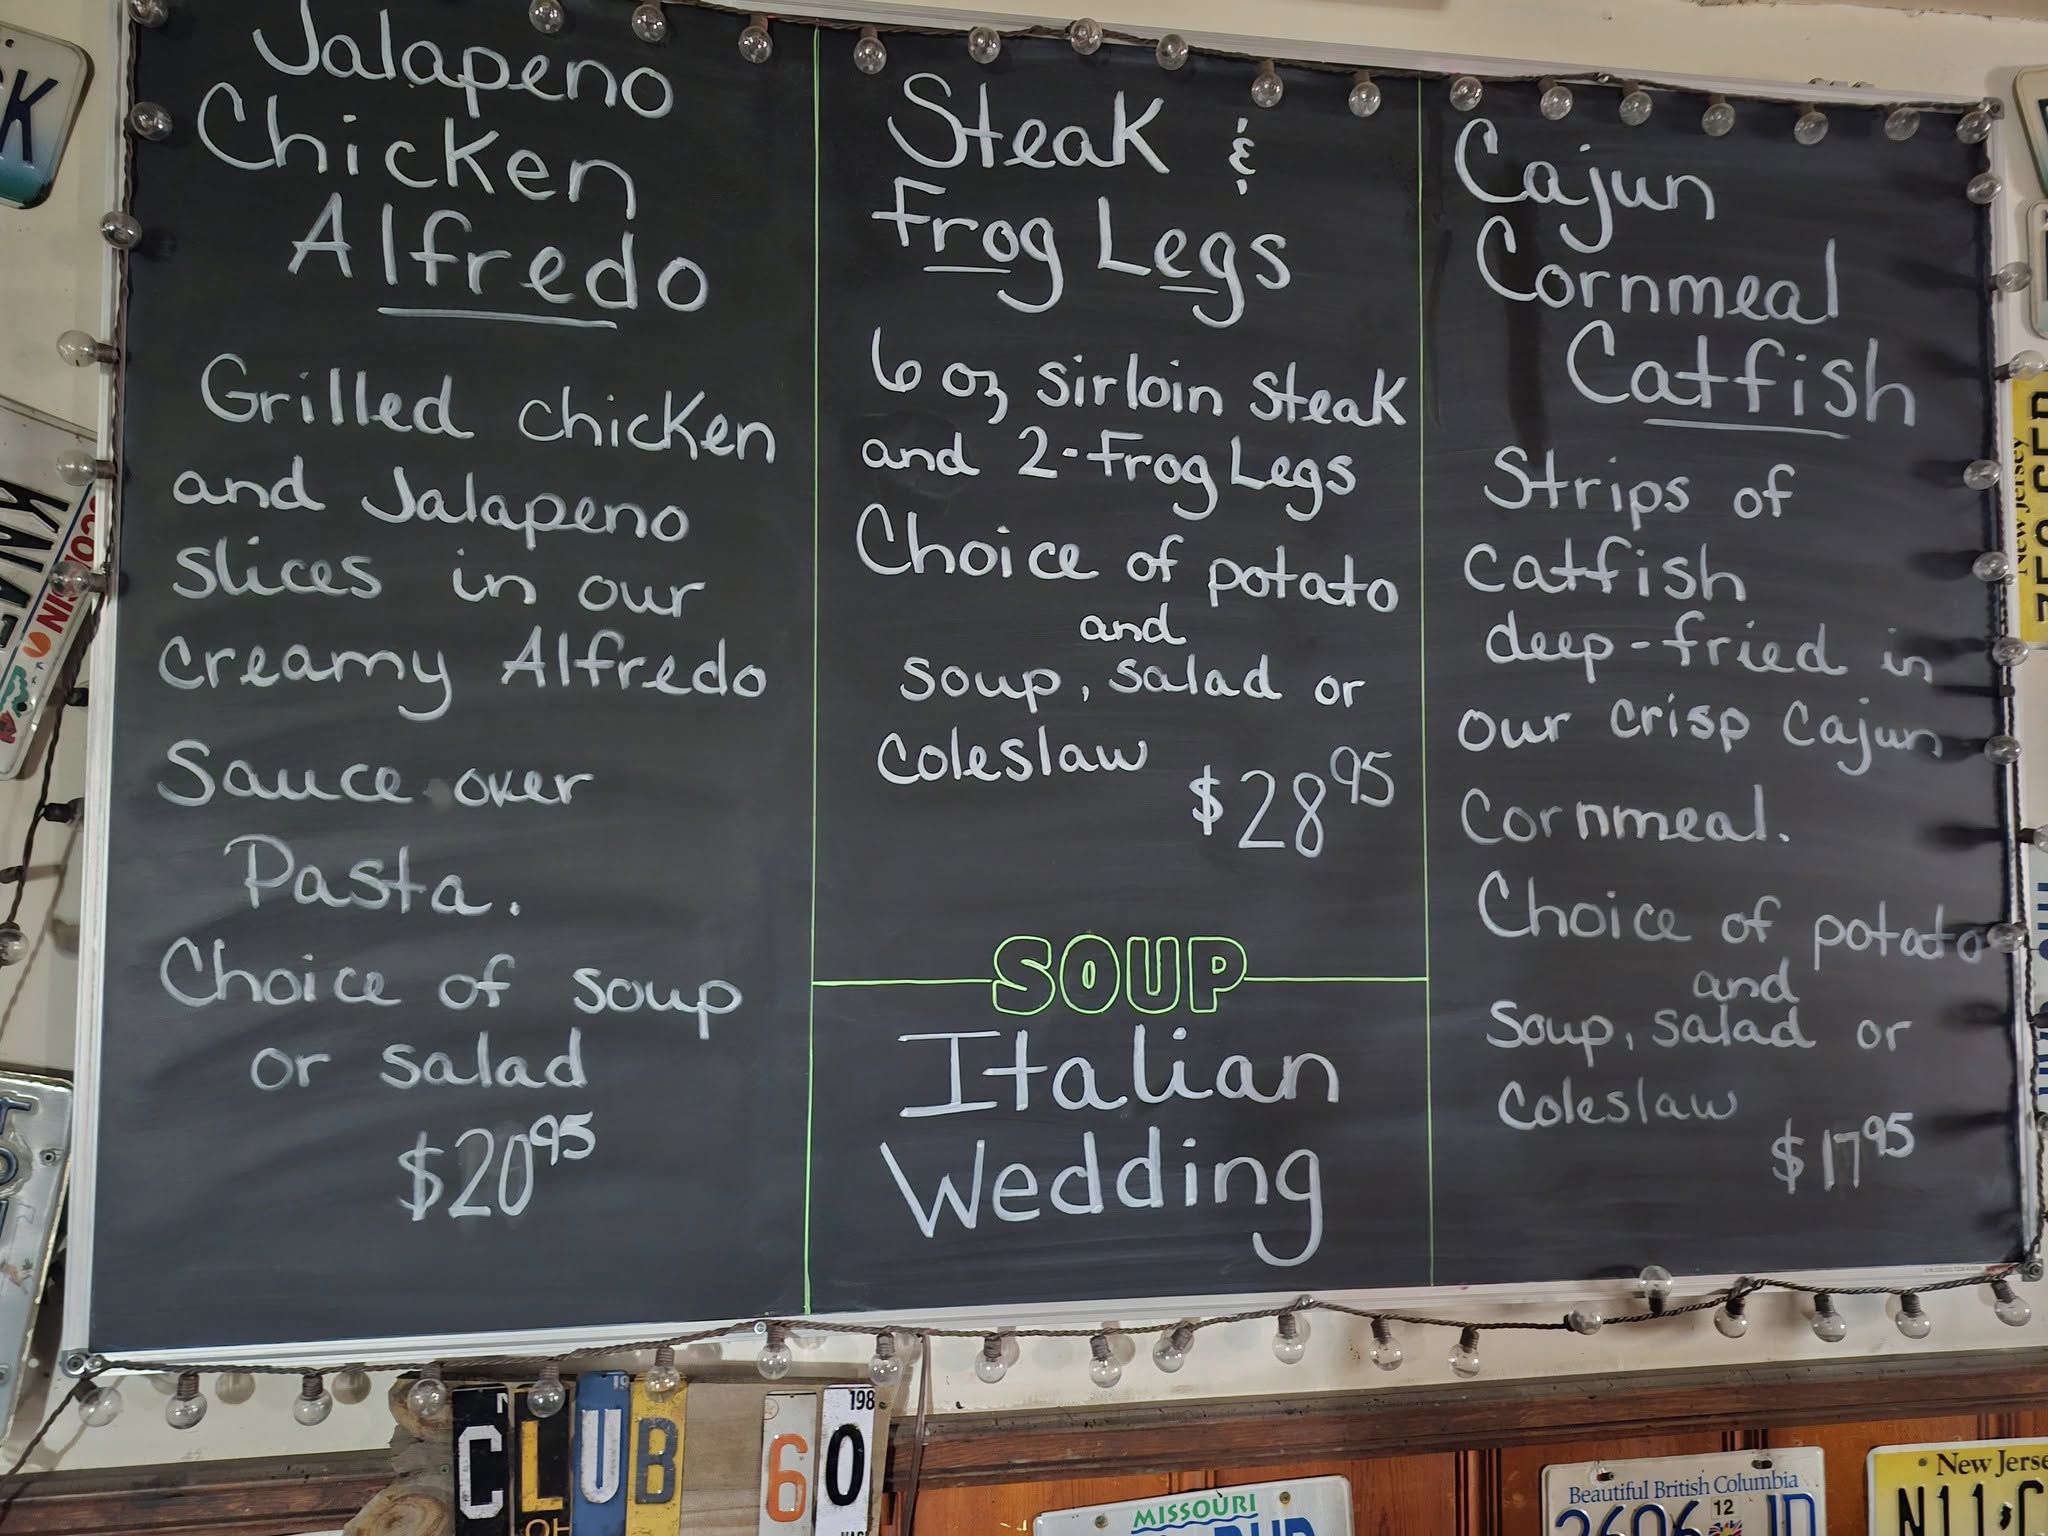 Jalapeno
Chicken
Alfredo
Grilled chicken
and Jalapeno
slices in our
creamy Alfredo
Sauce over
Pasta.
Choice of soup
or salad
$20 95
Steak &
Frog Legs
6 oz sirloin steak
and 2-Frog Legs
Choice of potato
and
soup, salad or
coleslaw
$28 95
SOUP
Italian
Wedding
Cajun
Cornmeal
Catfish
Strips of
catfish
deep-fried in
our crisp Cajun
Cornmeal.
Choice of potato
and
Soup, salad or
Coleslaw
$17 95
CLUB 60
198
OH
MISSOURI
Beautiful British Columbia
12
New Jerse
N11
New Jersey